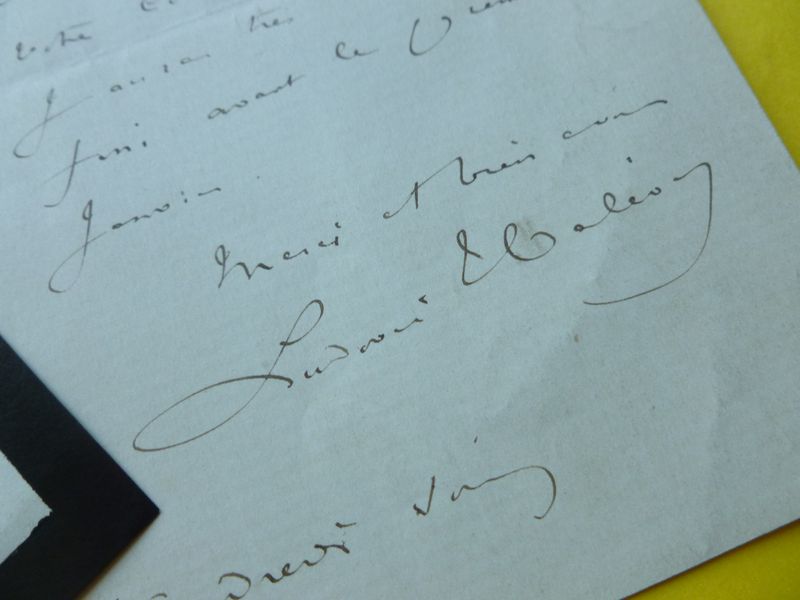 votre
J'aurai très
fini avant le
Janvier.
Merci et bien à vous
Ludovic Halévy
Vendredi soir